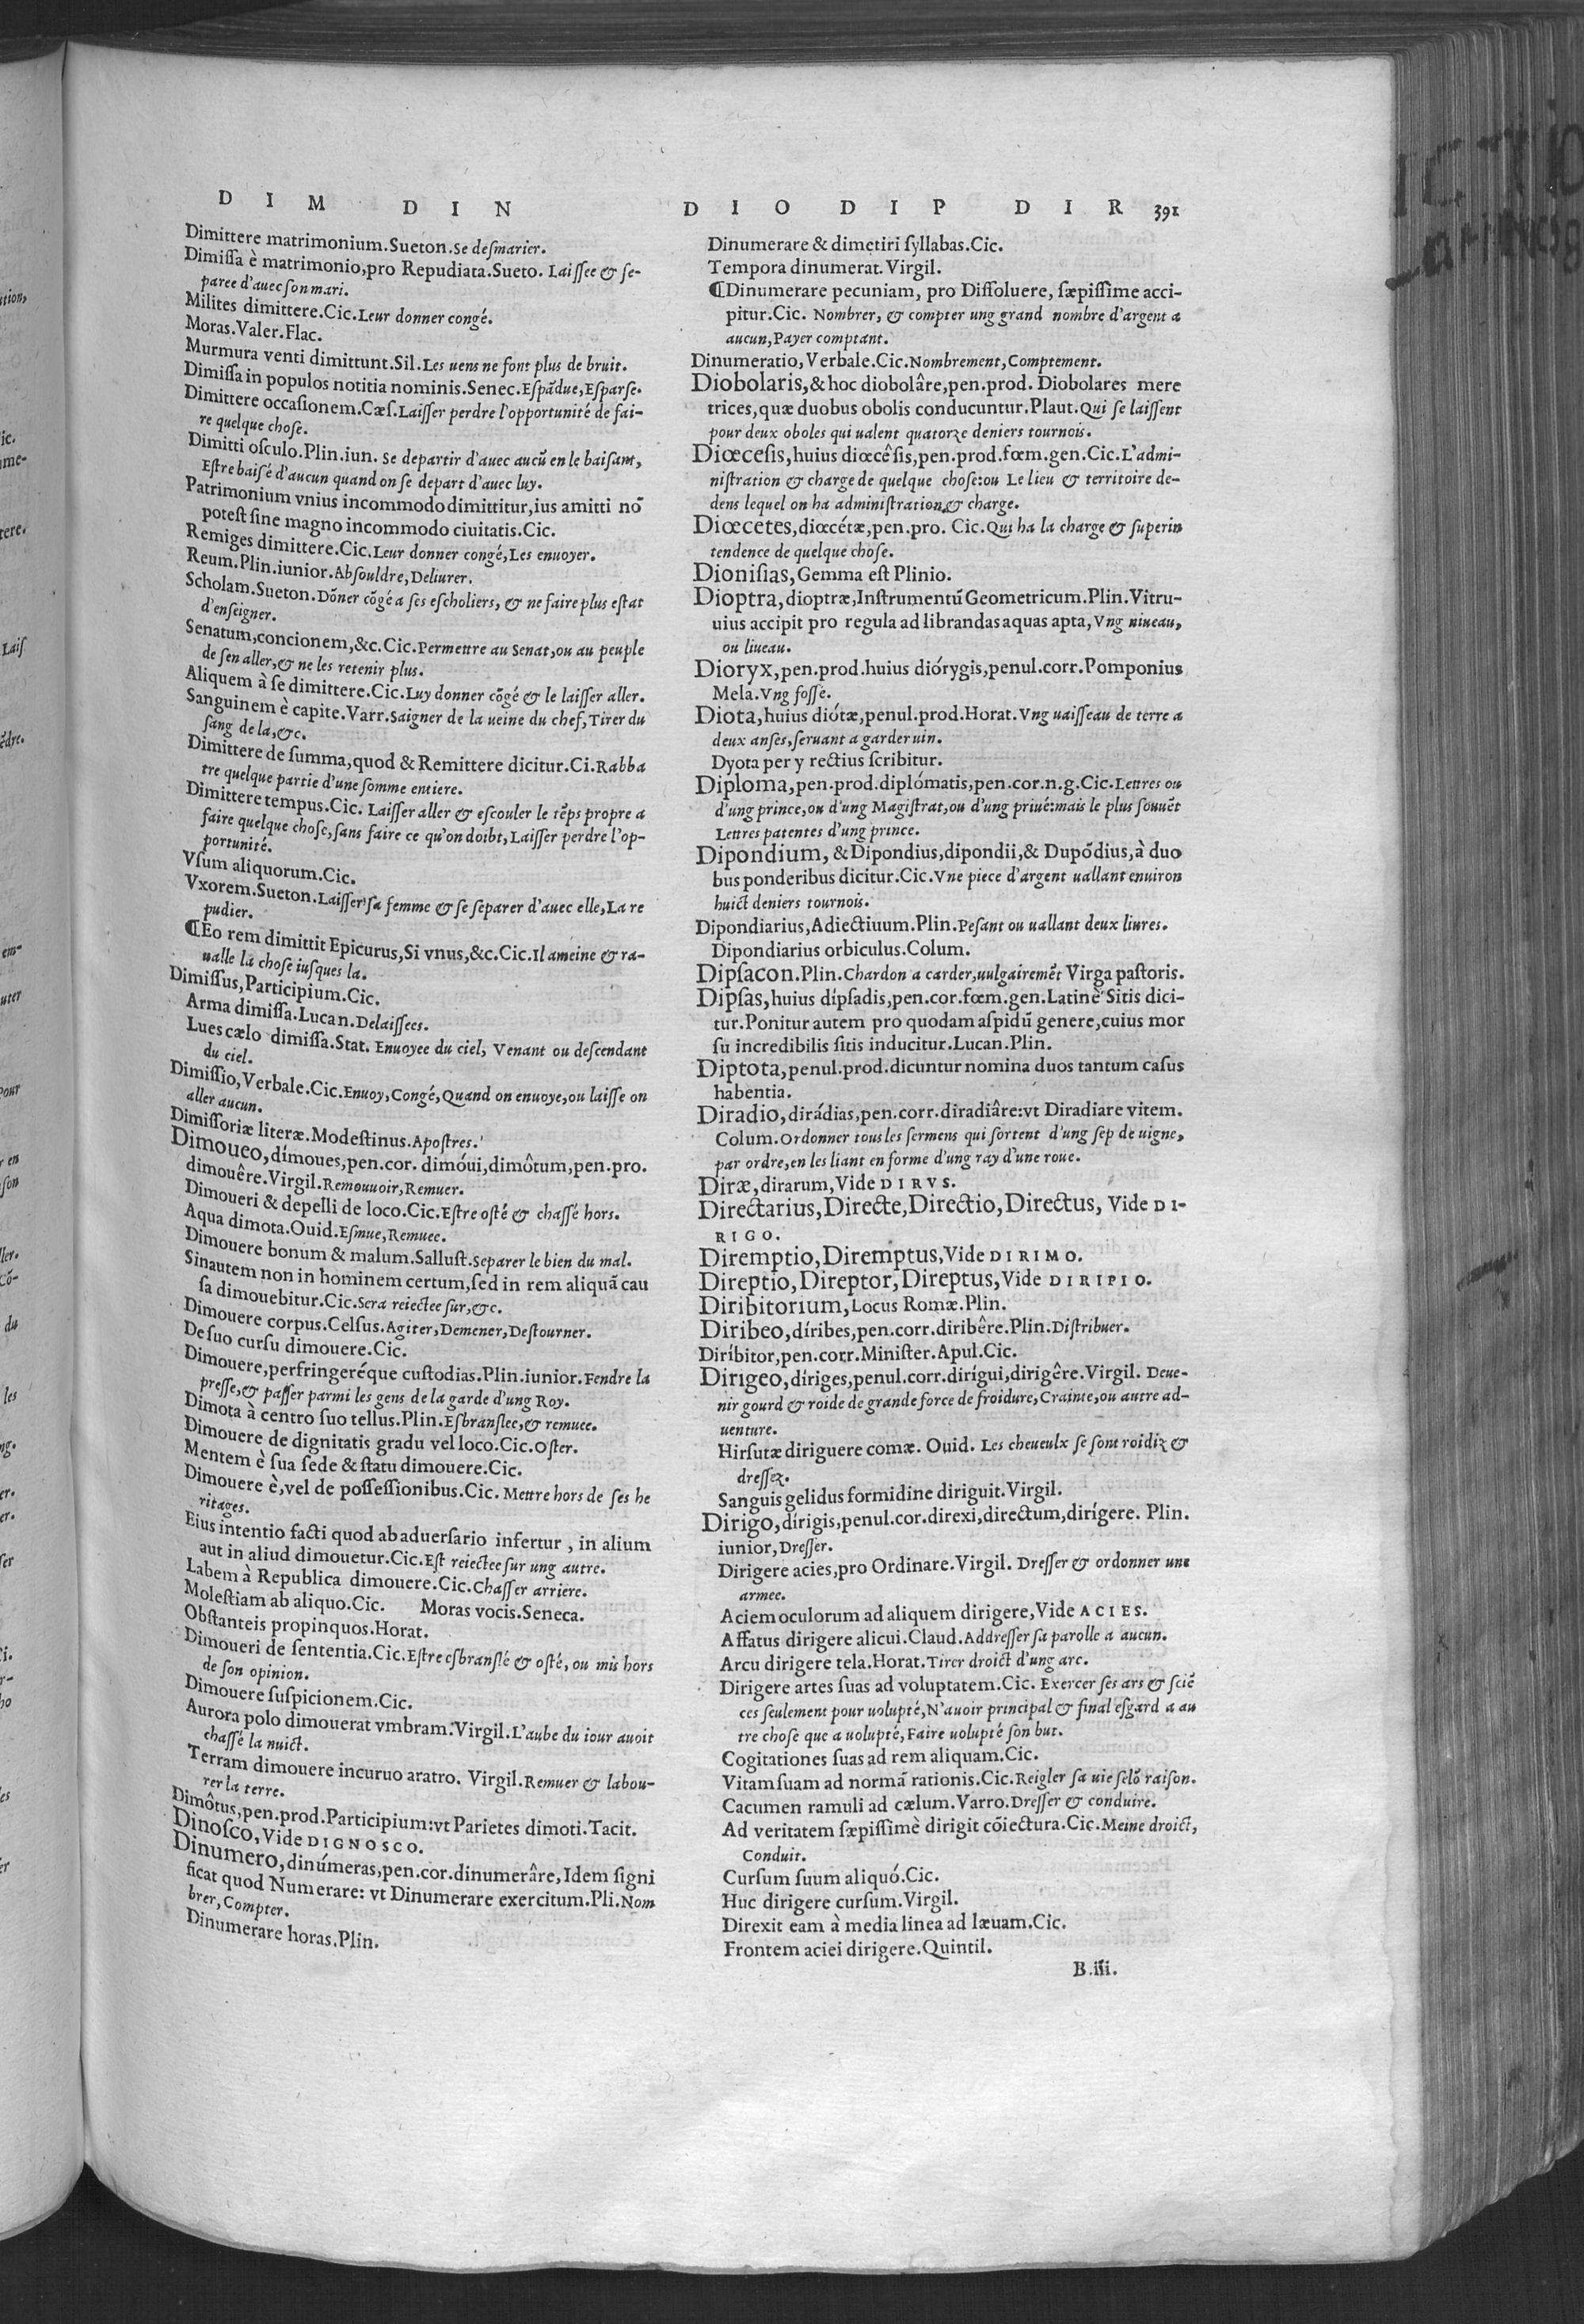 D I M D I N
Dimittere matrimonium.Sueton.Se desmarier.
Dimiſſa è matrimonio,pro Repudiata.Sueto. Laiſſee & ſe-
paree d'auec ſon mari.
Milites dimittere.Cic.Leur donner congé.
Moras.Valer.Flac.
Murmura venti dimittunt.Sil.Les uens ne font plus de bruit.
Dimiſſa in populos notitia nominis.Senec.Eſpãdue,Eſparſe.
Dimittere occaſionem.Cæſ.Laiſſer perdre l'opportunité de fai-
re quelque choſe.
Dimitti oſculo.Plin.iun. Se departir d'auec aucũ en le baiſant,
Eſtre baiſé d'aucun quand on ſe depart d'auec luy.
Patrimonium vnius incommodo dimittitur,ius amitti nõ
poteſt ſine magno incommodo ciuitatis.Cic.
Remiges dimittere.Cic.Leur donner congé,Les enuoyer.
Reum.Plin.iunior.Abſouldre,Deliurer.
Scholam.Sueton.Dõner cõgé a ſes eſcholiers, & ne faire plus eſtat
d'enſeigner.
Senatum,concionem,&c.Cic.Permettre au Senat,ou au peuple
de ſen aller,& ne les retenir plus.
Aliquem à ſe dimittere.Cic.Luy donner cõgé & le laiſſer aller.
Sanguinem è capite.Varr.Saigner de la ueine du chef,Tirer du
ſang de la,&c.
Dimittere de ſumma,quod & Remittere dicitur.Ci.Rabba
tre quelque partie d'une ſomme entiere.
Dimittere tempus.Cic. Laiſſer aller & eſcouler le tẽps propre a
faire quelque choſe,ſans faire ce qu'on doibt,Laiſſer perdre l'op-
portunité.
Vſum aliquorum.Cic.
Vxorem.Sueton.Laiſſer ſa femme & ſe ſeparer d'auec elle,La re
pudier.
¶Eo rem dimittit Epicurus,Si vnus,&c.Cic.Il ameine & ra-
ualle la choſe iuſques la.
Dimiſſus,Participium.Cic.
Arma dimiſſa.Lucan.Delaiſſees.
Lues cælo dimiſſa.Stat. Enuoyee du ciel, Venant ou deſcendant
du ciel.
Dimiſſio,Verbale.Cic.Enuoy,Congé,Quand on enuoye,ou laiſſe on
aller aucun.
Dimiſſoriæ literæ.Modeſtinus.Apoſtres.
Dimoueo,dímoues,pen.cor. dimóui,dimôtum,pen.pro.
dimouêre.Virgil.Remouuoir,Remuer.
Dimoueri & depelli de loco.Cic.Eſtre oſté & chaſſé hors.
Aqua dimota.Ouid.Eſmue,Remuee.
Dimouere bonum & malum.Salluſt.Separer le bien du mal.
Sinautem non in hominem certum,ſed in rem aliquã cau
ſa dimouebitur.Cic.Sera reiectee ſur,&c.
Dimouere corpus.Celſus.Agiter,Demener,Deſtourner.
De ſuo curſu dimouere.Cic.
Dimouere,perfringeréque cuſtodias.Plin.iunior.Fendre la
preſſe,& paſſer parmi les gens de la garde d'ung Roy.
Dimota à centro ſuo tellus.Plin.Eſbranſlee,& remuee.
Dimouere de dignitatis gradu vel loco.Cic.Oſter.
Mentem è ſua ſede & ſtatu dimouere.Cic.
Dimouere è,vel de poſſeſſionibus.Cic. Mettre hors de ſes he
ritages.
Eius intentio facti quod ab aduerſario infertur , in alium
aut in aliud dimouetur.Cic.Eſt reiectee ſur ung autre.
Labem à Republica dimouere.Cic.Chaſſer arriere.
Moleſtiam ab aliquo.Cic. Moras vocis.Seneca.
Obſtanteis propinquos.Horat.
Dimoueri de ſententia.Cic.Eſtre eſbranſlé & oſté, ou mis hors
de ſon opinion.
Dimouere ſuſpicionem.Cic.
Aurora polo dimouerat vmbram.Virgil.L'aube du iour auoit
chaſſé la nuict.
Terram dimouere incuruo aratro. Virgil.Remuer & labou-
rer la terre.
Dimôtus,pen.prod.Participium:vt Parietes dimoti.Tacit.
Dinoſco,Vide DIGNOSCO.
Dinumero,dinúmeras,pen.cor.dinumerâre,Idem ſigni
ficat quod Numerare: vt Dinumerare exercitum.Pli.Nom
brer,Compter.
Dinumerare horas.Plin.
D I O D I P D I R 391
Dinumerare & dimetiri ſyllabas.Cic.
Tempora dinumerat. Virgil.
¶Dinumerare pecuniam, pro Diſſoluere, ſæpiſſime acci-
pitur.Cic. Nombrer, & compter ung grand nombre d'argent a
aucun,Payer comptant.
Dinumeratio,Verbale.Cic.Nombrement,Comptement.
Diobolaris,& hoc diobolâre,pen.prod. Diobolares mere
trices,quæ duobus obolis conducuntur.Plaut.Qui ſe laiſſent
pour deux oboles qui ualent quatorze deniers tournois.
Diœceſis,huius diœcêſis,pen.prod.fœm.gen.Cic.L'admi-
niſtration & charge de quelque choſe:ou Le lieu & territoire de-
dens lequel on ha adminiſtration,& charge.
Diœcetes,diœcétæ,pen.pro. Cic.Qui ha la charge & ſuperin
tendence de quelque choſe.
Dioniſias,Gemma eſt Plinio.
Dioptra,dioptræ,Inſtrumentũ Geometricum.Plin.Vitru-
uius accipit pro regula ad librandas aquas apta,Vng niueau,
ou liueau.
Dioryx,pen.prod.huius diórygis,penul.corr.Pomponius
Mela.Vng foſſe.
Diota,huius diótæ,penul.prod.Horat.Vng uaiſſeau de terre a
deux anſes,ſeruant a garder uin.
Dyota per y rectius ſcribitur.
Diploma,pen.prod.diplómatis,pen.cor.n.g.Cic.Lettres ou
d'ung prince,ou d'ung Magiſtrat,ou d'ung priué:mais le plus ſouuẽt
Lettres patentes d'ung prince.
Dipondium, & Dipondius,dipondii,& Dupõdius,à duo
bus ponderibus dicitur.Cic.Vne piece d'argent uallant enuiron
huict deniers tournois.
Dipondiarius,Adiectiuum.Plin.Peſant ou uallant deux liures.
Dipondiarius orbiculus.Colum.
Dipſacon.Plin.Chardon a carder,uulgairemẽt Virga paſtoris.
Dipſas,huius dípſadis,pen.cor.fœm.gen.Latinè Sitis dici-
tur.Ponitur autem pro quodam aſpidũ genere,cuius mor
ſu incredibilis ſitis inducitur.Lucan.Plin.
Diptota,penul.prod.dicuntur nomina duos tantum caſus
habentia.
Diradio,dirádias,pen.corr.diradiâre:vt Diradiare vitem.
Colum.Ordonner tous les ſermens qui ſortent d'ung ſep de uigne,
par ordre,en les liant en forme d'ung ray d'une roue.
Diræ,dirarum,Vide DIRVS.
Directarius,Directe,Directio,Directus, Vide DI-
RIGO.
Diremptio,Diremptus,Vide DIRIMO.
Direptio,Direptor,Direptus,Vide DIRIPIO.
Diribitorium,Locus Romæ.Plin.
Diribeo,díribes,pen.corr.diribêre.Plin.Diſtribuer.
Diríbitor,pen.corr.Miniſter.Apul.Cic.
Dirigeo,díriges,penul.corr.dirígui,dirigêre.Virgil. Deue-
nir gourd & roide de grande force de froidure,Crainte,ou autre ad-
uenture.
Hirſutæ diriguere comæ. Ouid. Les cheueulx ſe ſont roidiz &
dreſſez.
Sanguis gelidus formidine diriguit.Virgil.
Dirigo,dírigis,penul.cor.direxi,directum,dirígere. Plin.
iunior,Dreſſer.
Dirigere acies,pro Ordinare.Virgil. Dreſſer & ordonner une
armee.
Aciem oculorum ad aliquem dirigere,Vide ACIES.
Affatus dirigere alicui.Claud.Addreſſer ſa parolle a aucun.
Arcu dirigere tela.Horat.Tirer droict d'ung arc.
Dirigere artes ſuas ad voluptatem.Cic. Exercer ſes ars & ſciẽ
ces ſeulement pour uolupté,N'auoir principal & final eſgard a au
tre choſe que a uolupté,Faire uolupté ſon but.
Cogitationes ſuas ad rem aliquam.Cic.
Vitam ſuam ad normã rationis.Cic.Reigler ſa uie ſelõ raiſon.
Cacumen ramuli ad cælum.Varro.Dreſſer & conduire.
Ad veritatem ſæpiſſimè dirigit cõiectura.Cic.Meine droict,
Conduit.
Curſum ſuum aliquó.Cic.
Huc dirigere curſum.Virgil.
Direxit eam à media linea ad læuam.Cic.
Frontem aciei dirigere.Quintil.
B.iii.